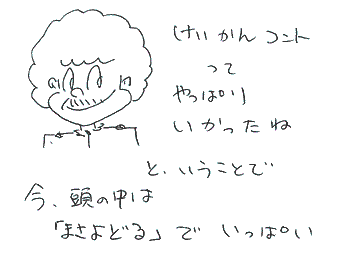 けいかん コント
って
やっぱり
いかったね
と、いうことで
今、頭の中は
「まさよどる」で いっぱい